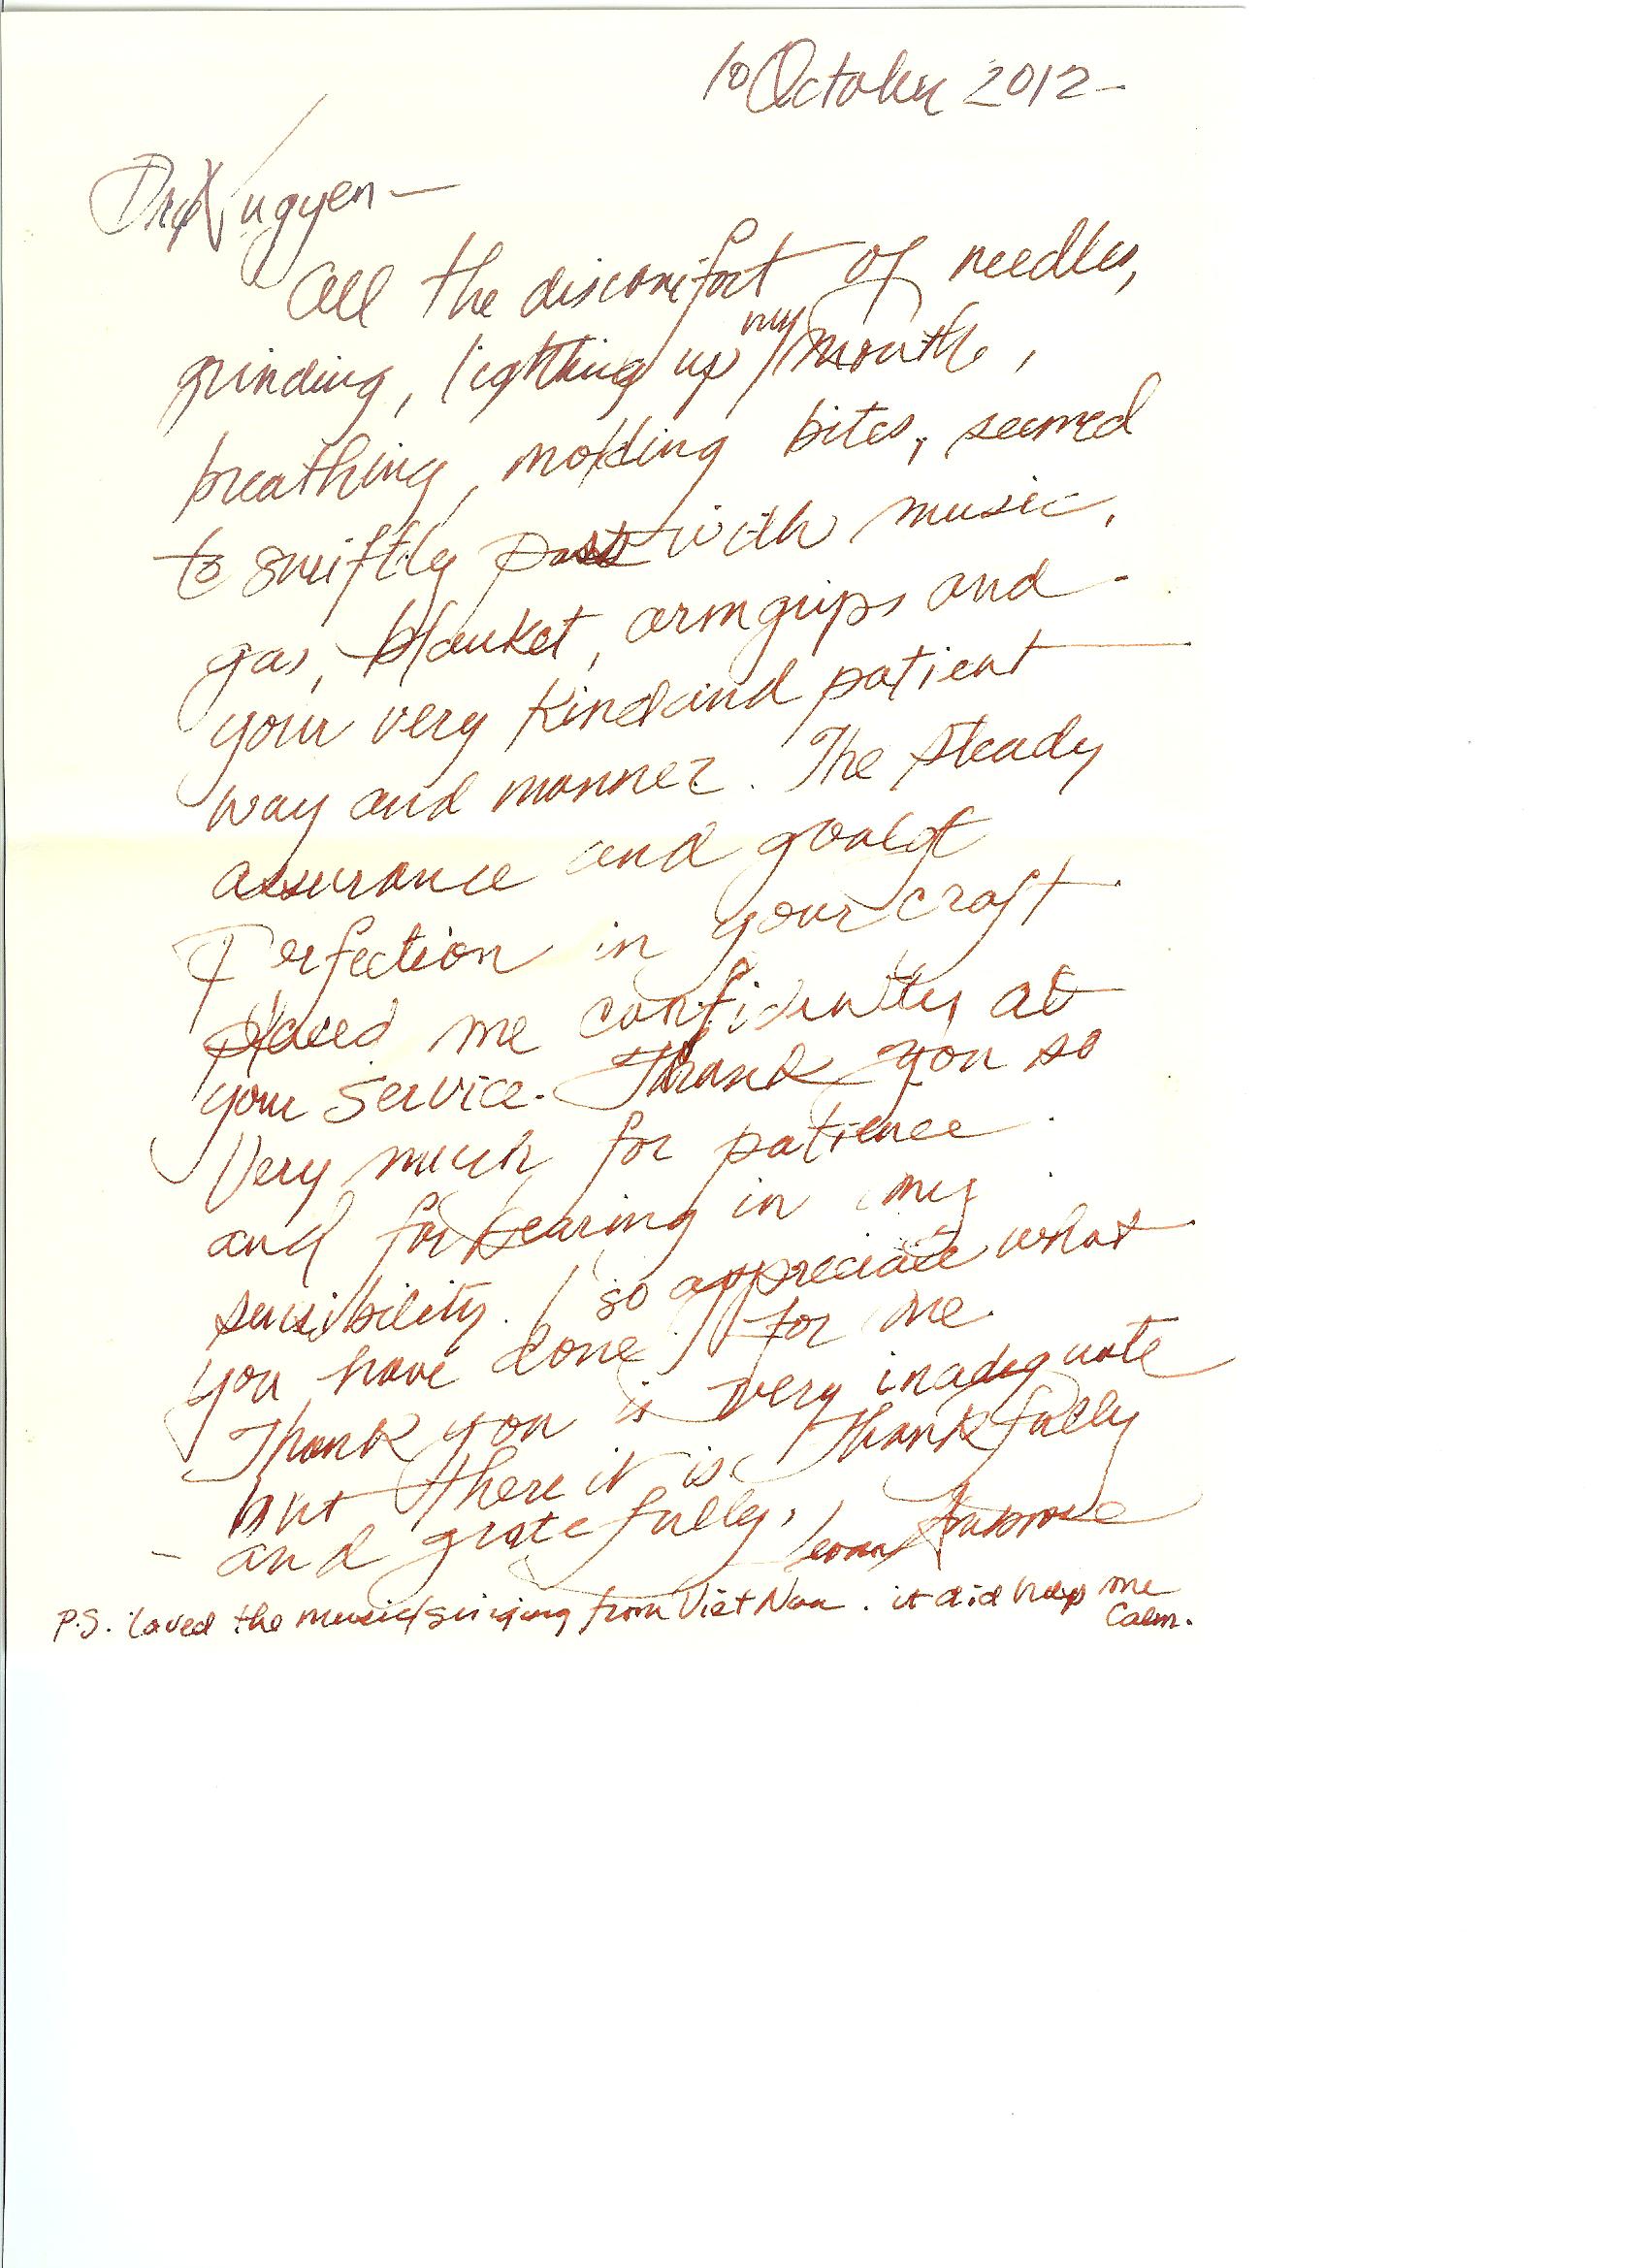 10 October 2012-
Dr. Nugyen —
All the discomfort of needles,
grinding, lighting up my mouth,
breathing, molding bites, seemed
to swiftly pass with music,
gas, blanket, armgrips and
your very kind and patient
way and manner. The steady
assurance and goal of
Perfection in your craft
placed me confidently at
your service. Thank you so
Very much for patience
and forbearing in my
sensibility. I so appreciate what
you have done for me.
Thank you is very inadequate
but there it is. Thankfully
- and gratefully, Ambrose
P.S. loved the music/singing from Viet Nam. it did help me
calm.